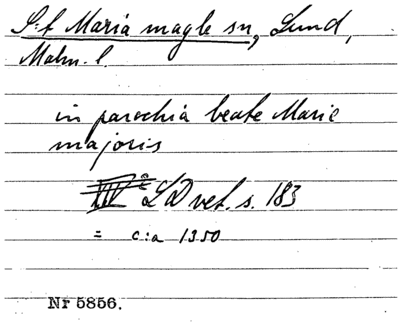 S:t Maria magle sn, Lund,
Malm. l.
in parochia beate Marie
majoris
LD vet. s. 183
= c:a 1350
Nr 5856.